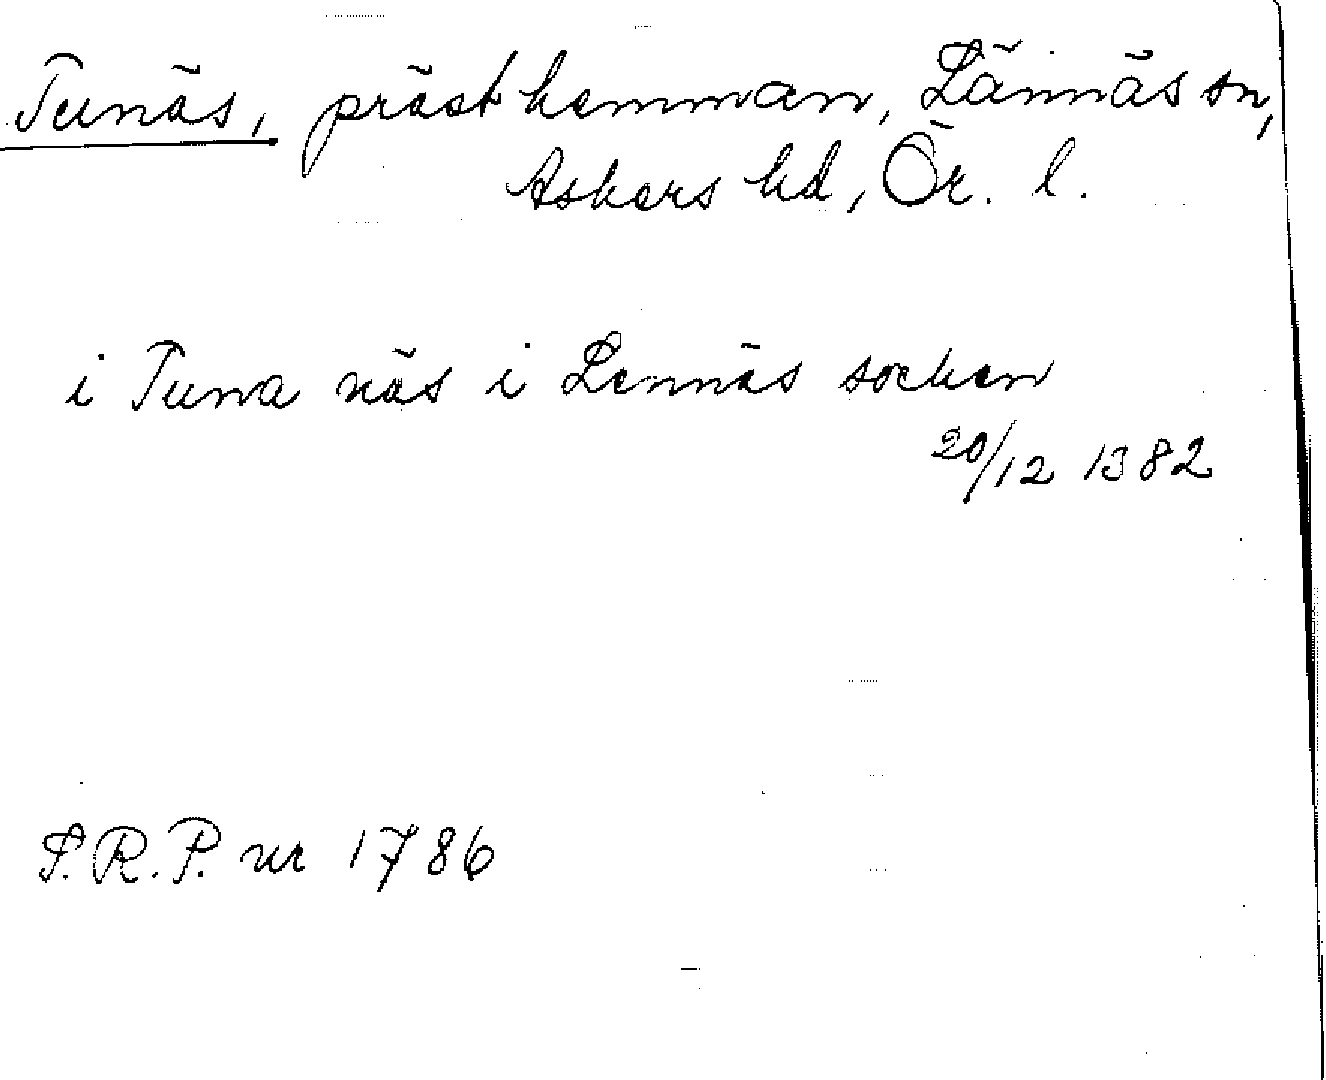 Tunäs, prästhemman, Lännäs sn,
Askers hd, Ör. l.
i Tuna näs i Lennäs socken
20/12 1382
S.R.P. nr 1786